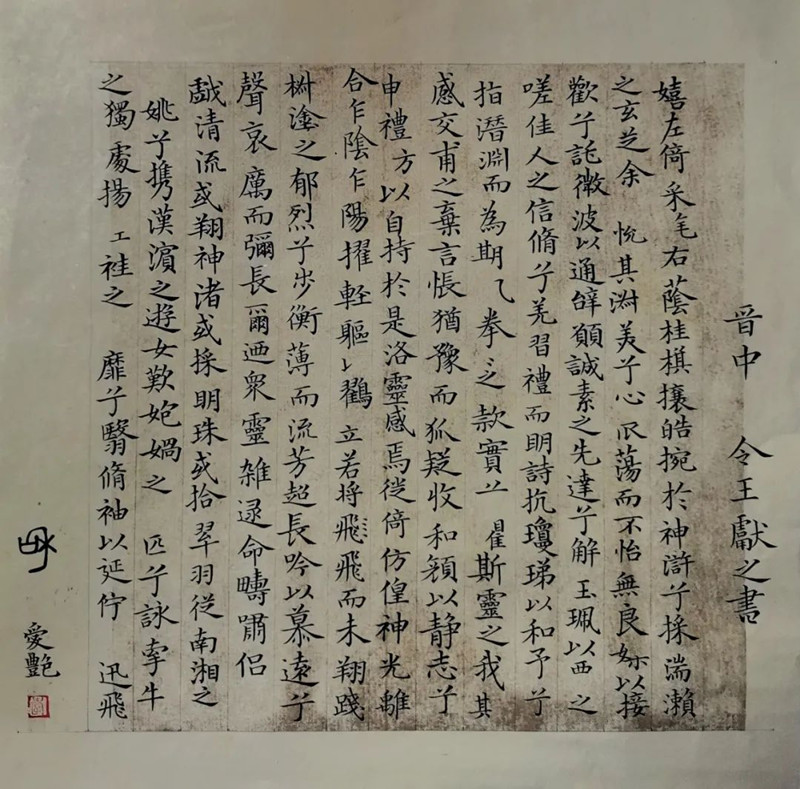 晋中 令王獻之書
嬉左倚采旄右蔭桂棋攘皓捥於神滸兮採湍瀨
之玄芝余 悅其淑美兮心 蕩而不怡無良媒以接
歡兮託微波以通辭願誠素之先達兮解玉珮以 之
嗟佳人之信脩兮羌習禮而明詩抗瓊珶以和予兮
指潛淵而為期 拳〻之款實 斯靈之我其
感交甫之棄言悵猶豫而狐疑收和顏以靜志兮
申禮方以自持於是洛靈感焉徙倚仿偟神光離
合乍陰乍陽擢輕軀 鸛立若将飛飛而未翔踐
椒塗之郁烈兮步衡薄而流芳超長吟以慕遠兮
聲哀厲而彌長爾迺衆靈雜遝命疇嘯侶
戯清流或翔神渚或採明珠或拾翠羽從南湘之
姚兮携漢濱之遊女歎媧之 匹兮詠牽牛
之獨處揚 袿之 靡兮翳脩袖以延佇 迅飛
愛艷